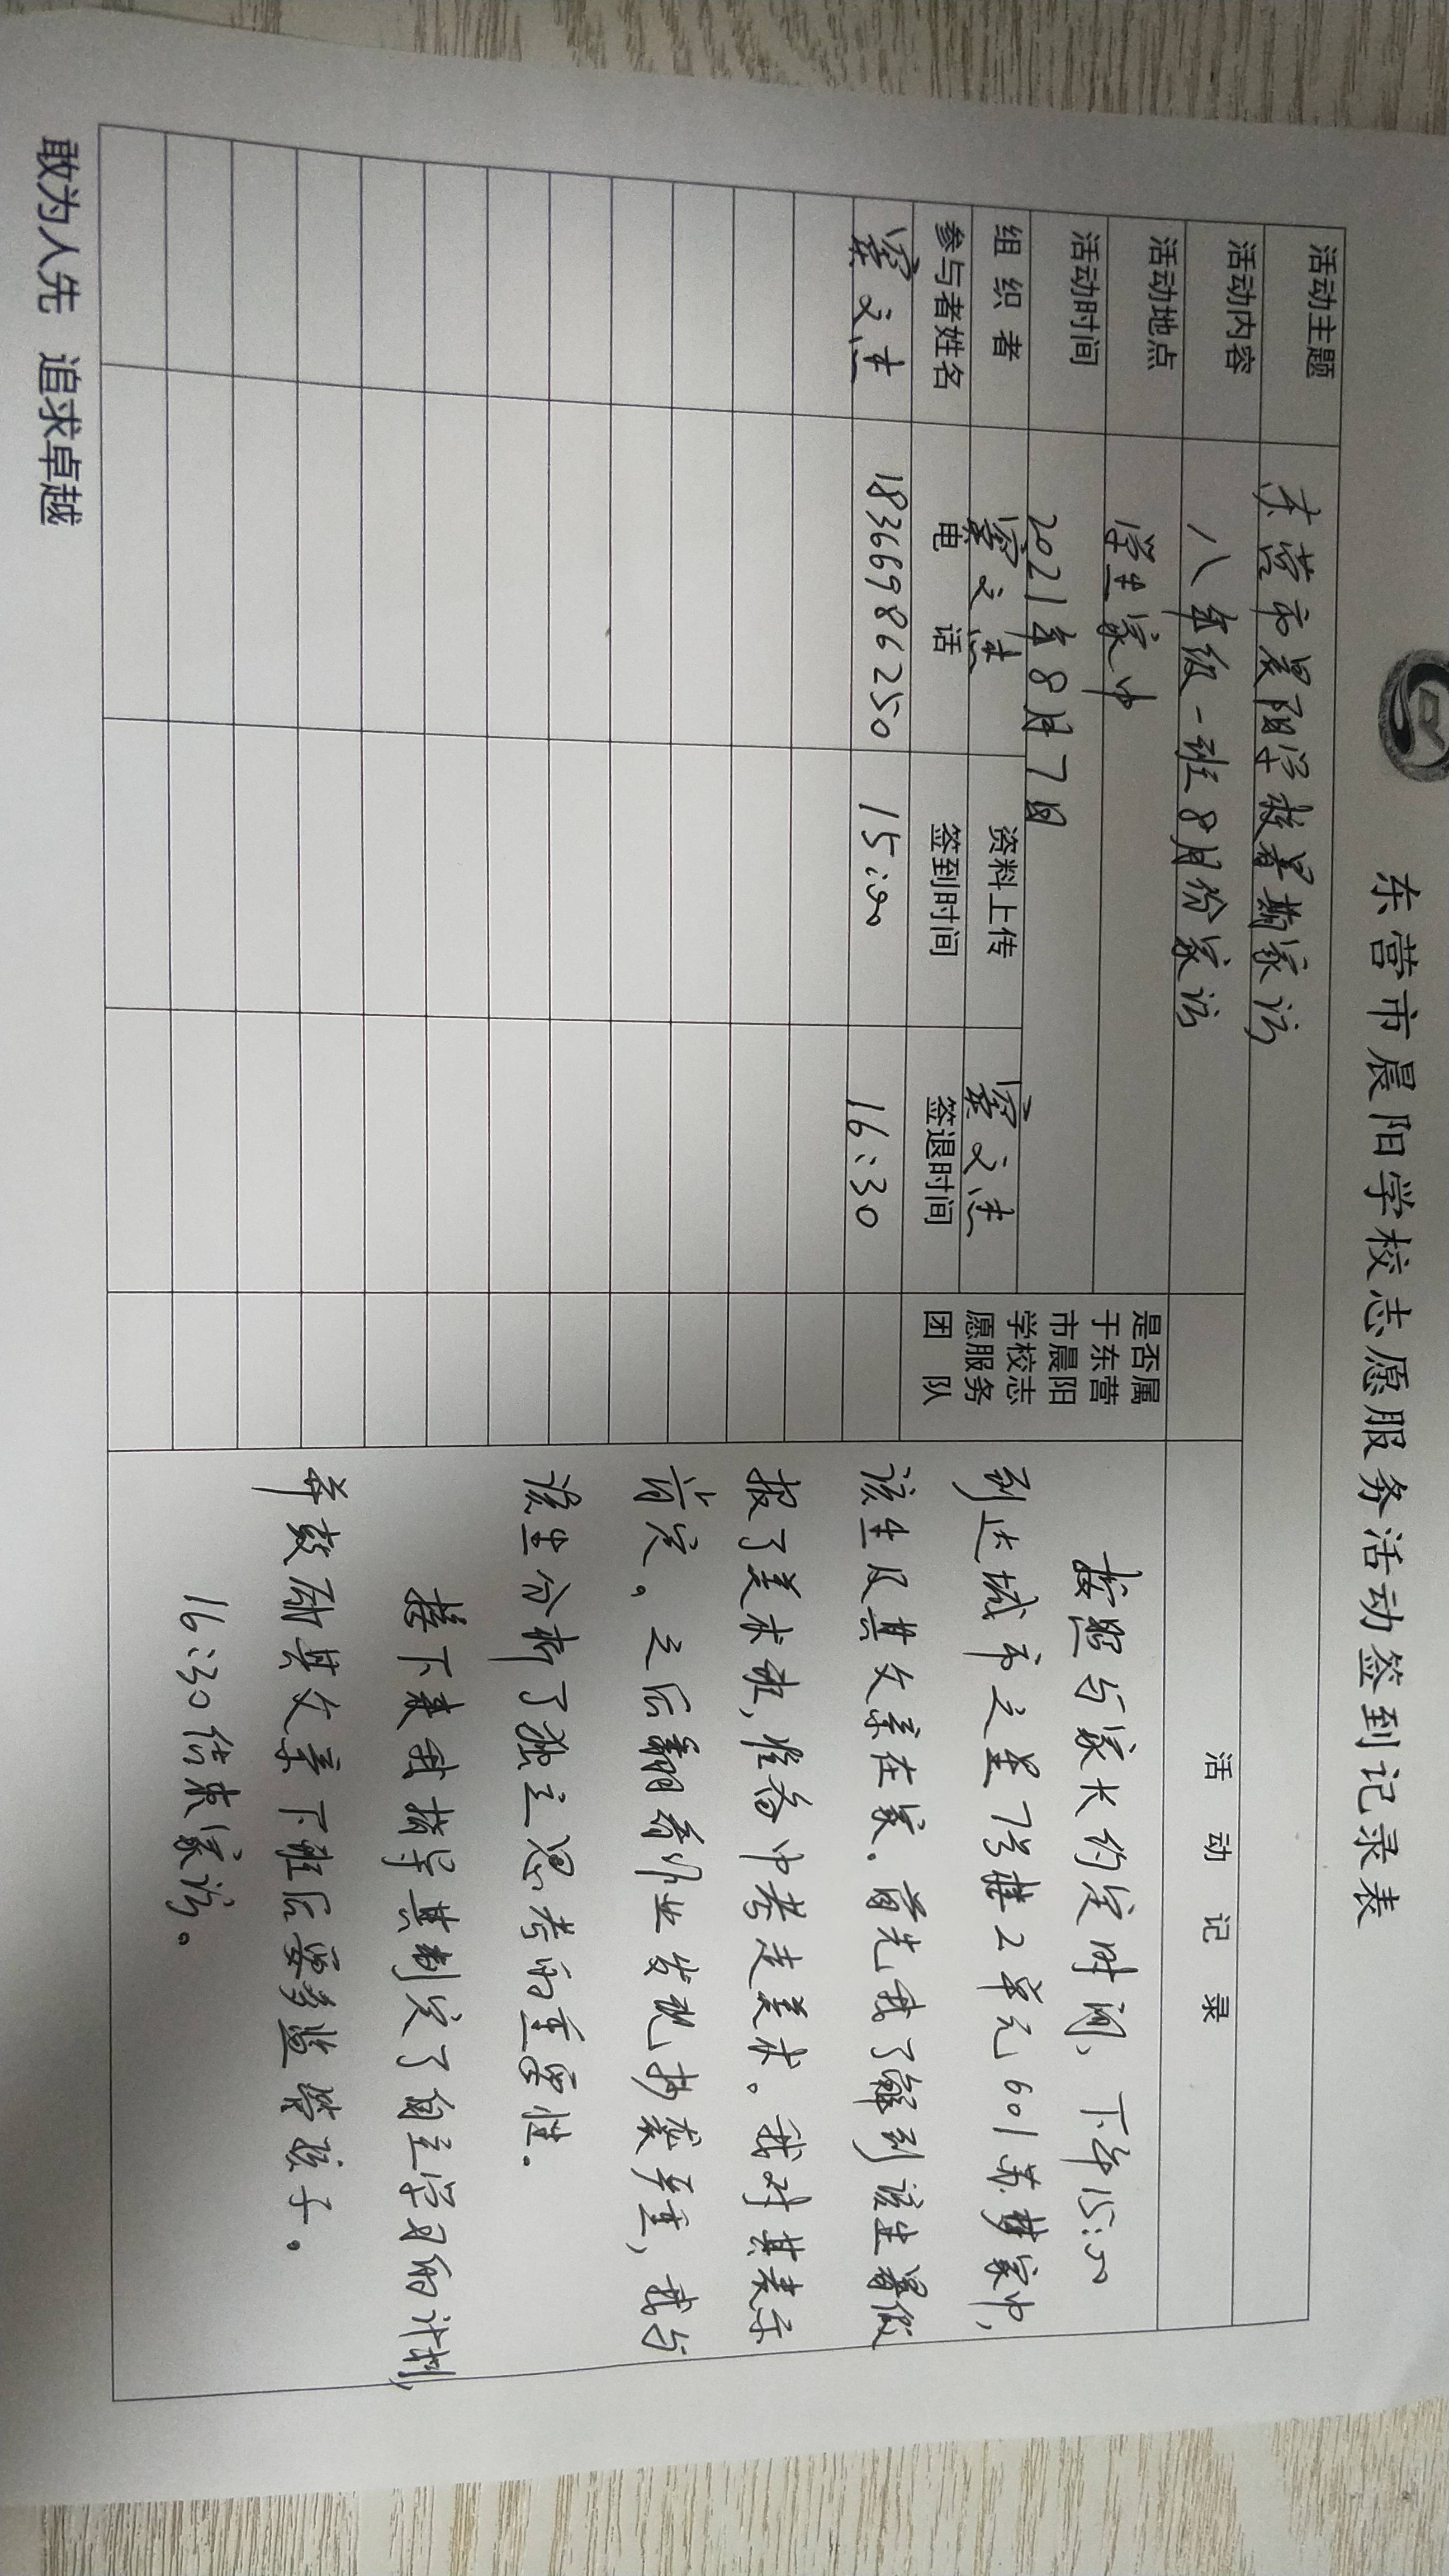 东营市晨阳学校志愿服务活动签到记录表
活动主题 东营市晨阳学校暑期家访
活动内容 八年级一班8月份家访
活动地点 学生家中
活动时间 2021年8月7日
组织者 文 资料上传 文
参与者姓名 电话 签到时间 签退时间
是否属
于东营
市晨阳
学校志
愿服务
团队
文 18366986250 15:00 16:30
活动记录
按照与家长约定时间、下午15:00
到达城市之星7号楼2单元601苏梦家中,
该生及其父亲在家。首先我了解到该生暑假
报了美术班,准备中考走美术。我对其表示
肯定。之后翻看作业发现抄袭严重,我与
该生分析了独立思考的重要性.
接下来我指导其制定了自主学习的计划,
并鼓励其父亲下班后要多监管孩子。
16:30结束家访。
敢为人先 追求卓越